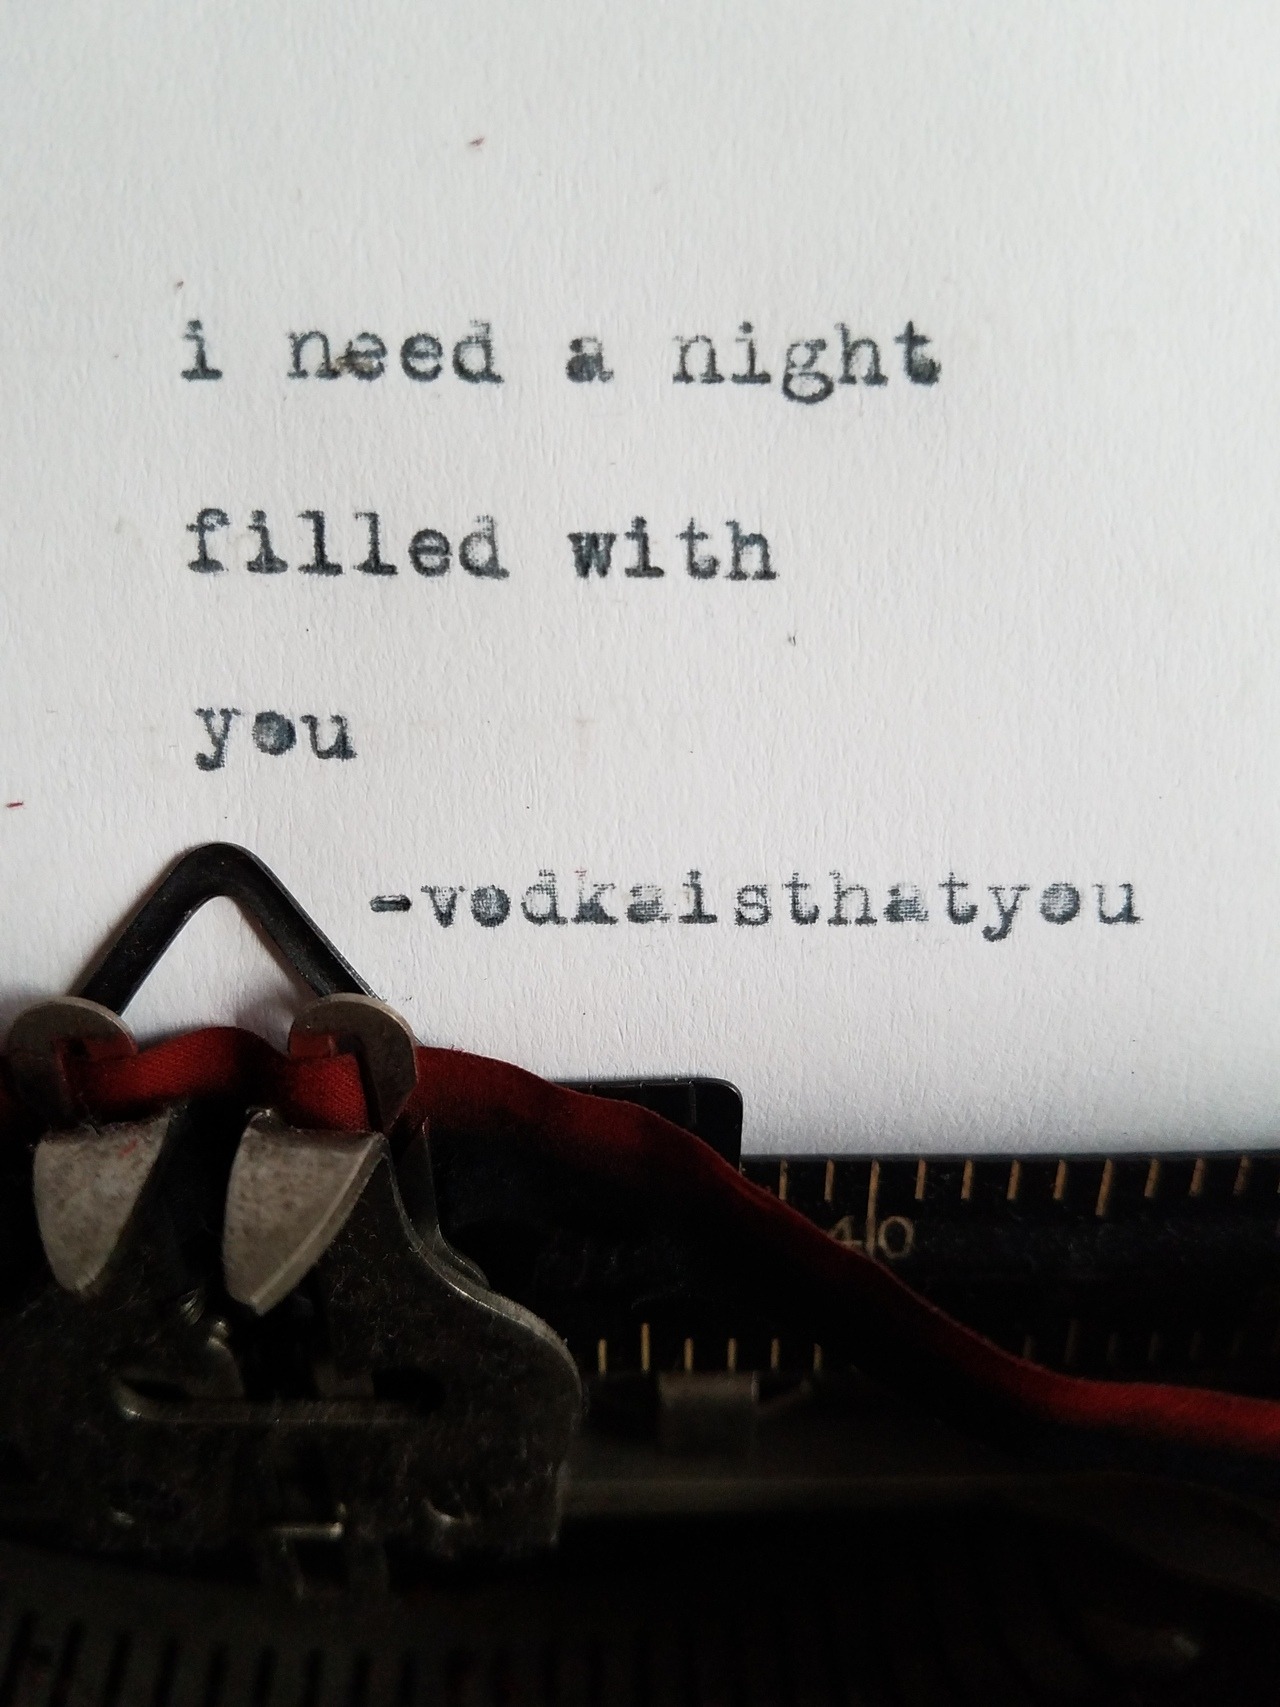 i need a night
filled with
you
-vodkaisthatyou
40